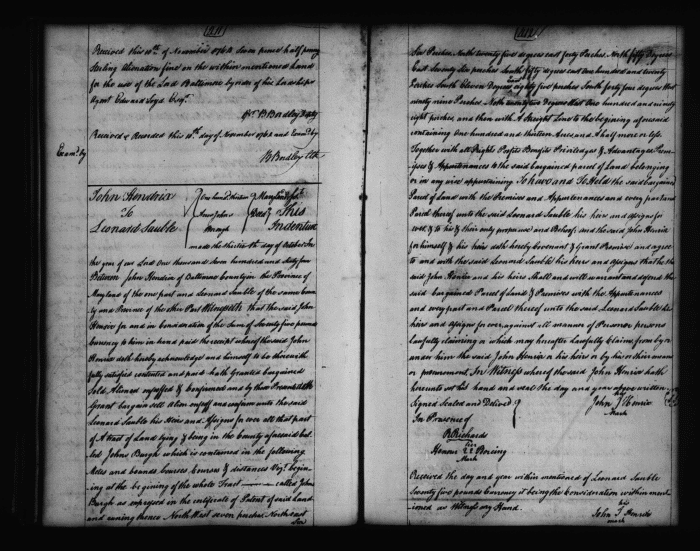 Received this 10th of November 1764 Seven pence half penny
Sterling Alienation fine on the within mentioned Land
for the use of the Lord Baltimore by order of his Lordships
Agent Edward Loyd Esqr.
B. Bordley
Received & Recorded this 10th day of November 1764 and Exam'd by
Exam'd by
B Bordley Clk
John Hendrix
To
Leonard Sauble
One hundred thirteen
Acres Johns
Burgh
Maryland Sct
Deed
This
Indenture
made the sixth day of October In
the year of our Lord One thousand seven hundred and Sixty four
Between John Hendrix of Baltimore County in the Province of
Maryland of the one part and Leonard Sauble of the same Coun
ty and Province of the other Part Witnesseth that the said John
Henrix for and in consideration of the Sum of Twenty five pounds
Currency to him in hand paid the receipt whereof the said John
Henrix doth hereby acknowledge and himself to be therewith
fully satisfied contented and paid hath Granted bargained
Sold Aliened enfeoffed & Confirmed and by these Presents doth
Grant bargain sell alien enfeoff and confirm unto the said
Leonard Sauble his Heirs and Assigns for ever all that part
of A tract of Land lying & being in the County aforesaid cal
led Johns Burgh which is contained in the following
Metes and bounds Courses & distances Viz. begin
ing at the begining of the whole Tract called Johns
Burgh as expressed in the certificate of Patent of said Land
and runing thence North West seven perches North east
Perches North twenty five degrees east forty Perches North fifty Degrees
East Seventy Six perches South fifty degrees east One hundred and twenty
Perches South Eleven Degrees eighty five perches South forty four degrees
ninety nine Perches North twenty Degrees West One hundred and ninety
eight perches and then with A Straight Line to the begining aforesaid
containing One hundred and thirteen Acres and A half more or less
Together with all Rights Profits Benefits Priviledges & Advantages Prem
ises & Appurtenances to the said bargained parcel of Land belonging
or in any wise appertaining To have and To Hold the said bargained
Parcel of Land with the Premises and Appurtenances and every part and
Parcel thereof unto the said Leonard Sauble his heirs and assigns for
ever & to his & their only proper use and Behoof and the said John Henrix
for himself & his heirs doth hereby Covenant & Grant Promise and agree
to and with the said Leonard Sauble his heirs and assigns that he the
said John Henrix and his heirs Shall and will warrant and defend the
said bargained Parcel of Land & Premises with the Appurtenances
and every part and Parcel thereof unto the said Leonard Sauble his
heirs and assigns for ever against all manner of Person or persons
lawfully claiming or which may hereafter lawfully Claim from by or
under him the said John Henrix or his heirs or by his or their means
or procurement In Witness whereof the said John Henrix hath
hereunto set his hand and seal the day and year above written
Signed Sealed and Delivered
In Presence of
John Henrix
mark
R Richards
Honour Bowing
Mark
Received the day and year within mentioned of Leonard Sauble
Twenty five pounds Currency it being the Consideration within ment
ioned as Witness my Hand
his
John Henrix
mark